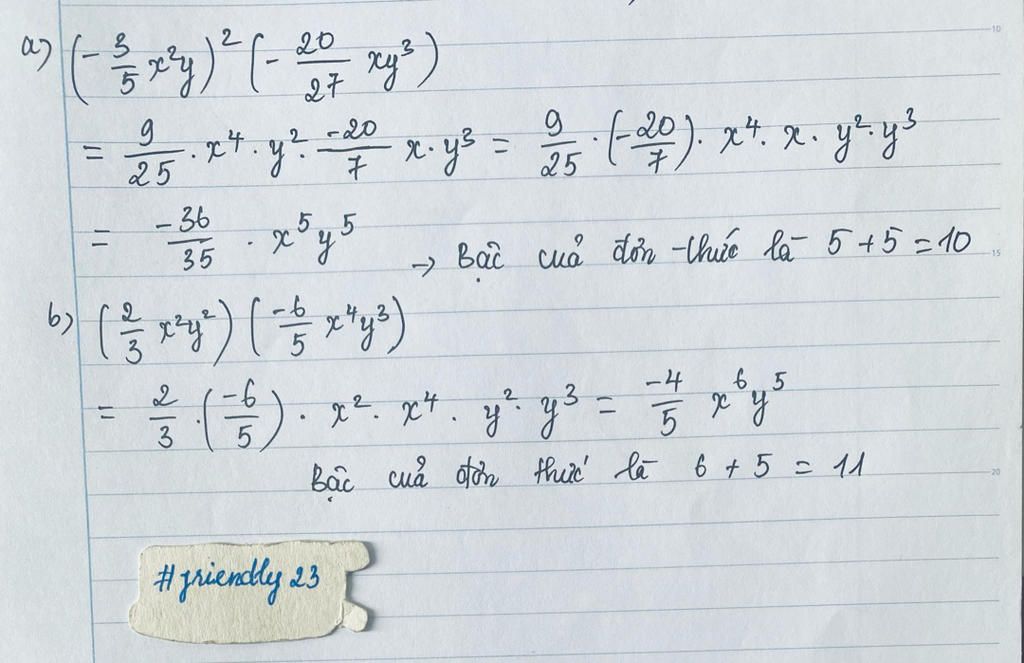 a) (-3/5 x²y)² (-20/27 xy³)
= 9/25 . x⁴ . y² . -20/7 x . y³ = 9/25 . (-20/7) . x⁴ . x . y² . y³
= -36/35 . x⁵y⁵ → Bậc củả đơn thức là 5 + 5 = 10
b) (2/3 x²y²) (-6/5 x⁴y³)
= 2/3 . (-6/5) . x² . x⁴ . y² . y³ = -4/5 x⁶y⁵
Bậc củả đơn thức là 6 + 5 = 11
#friendly 23
10
15
20